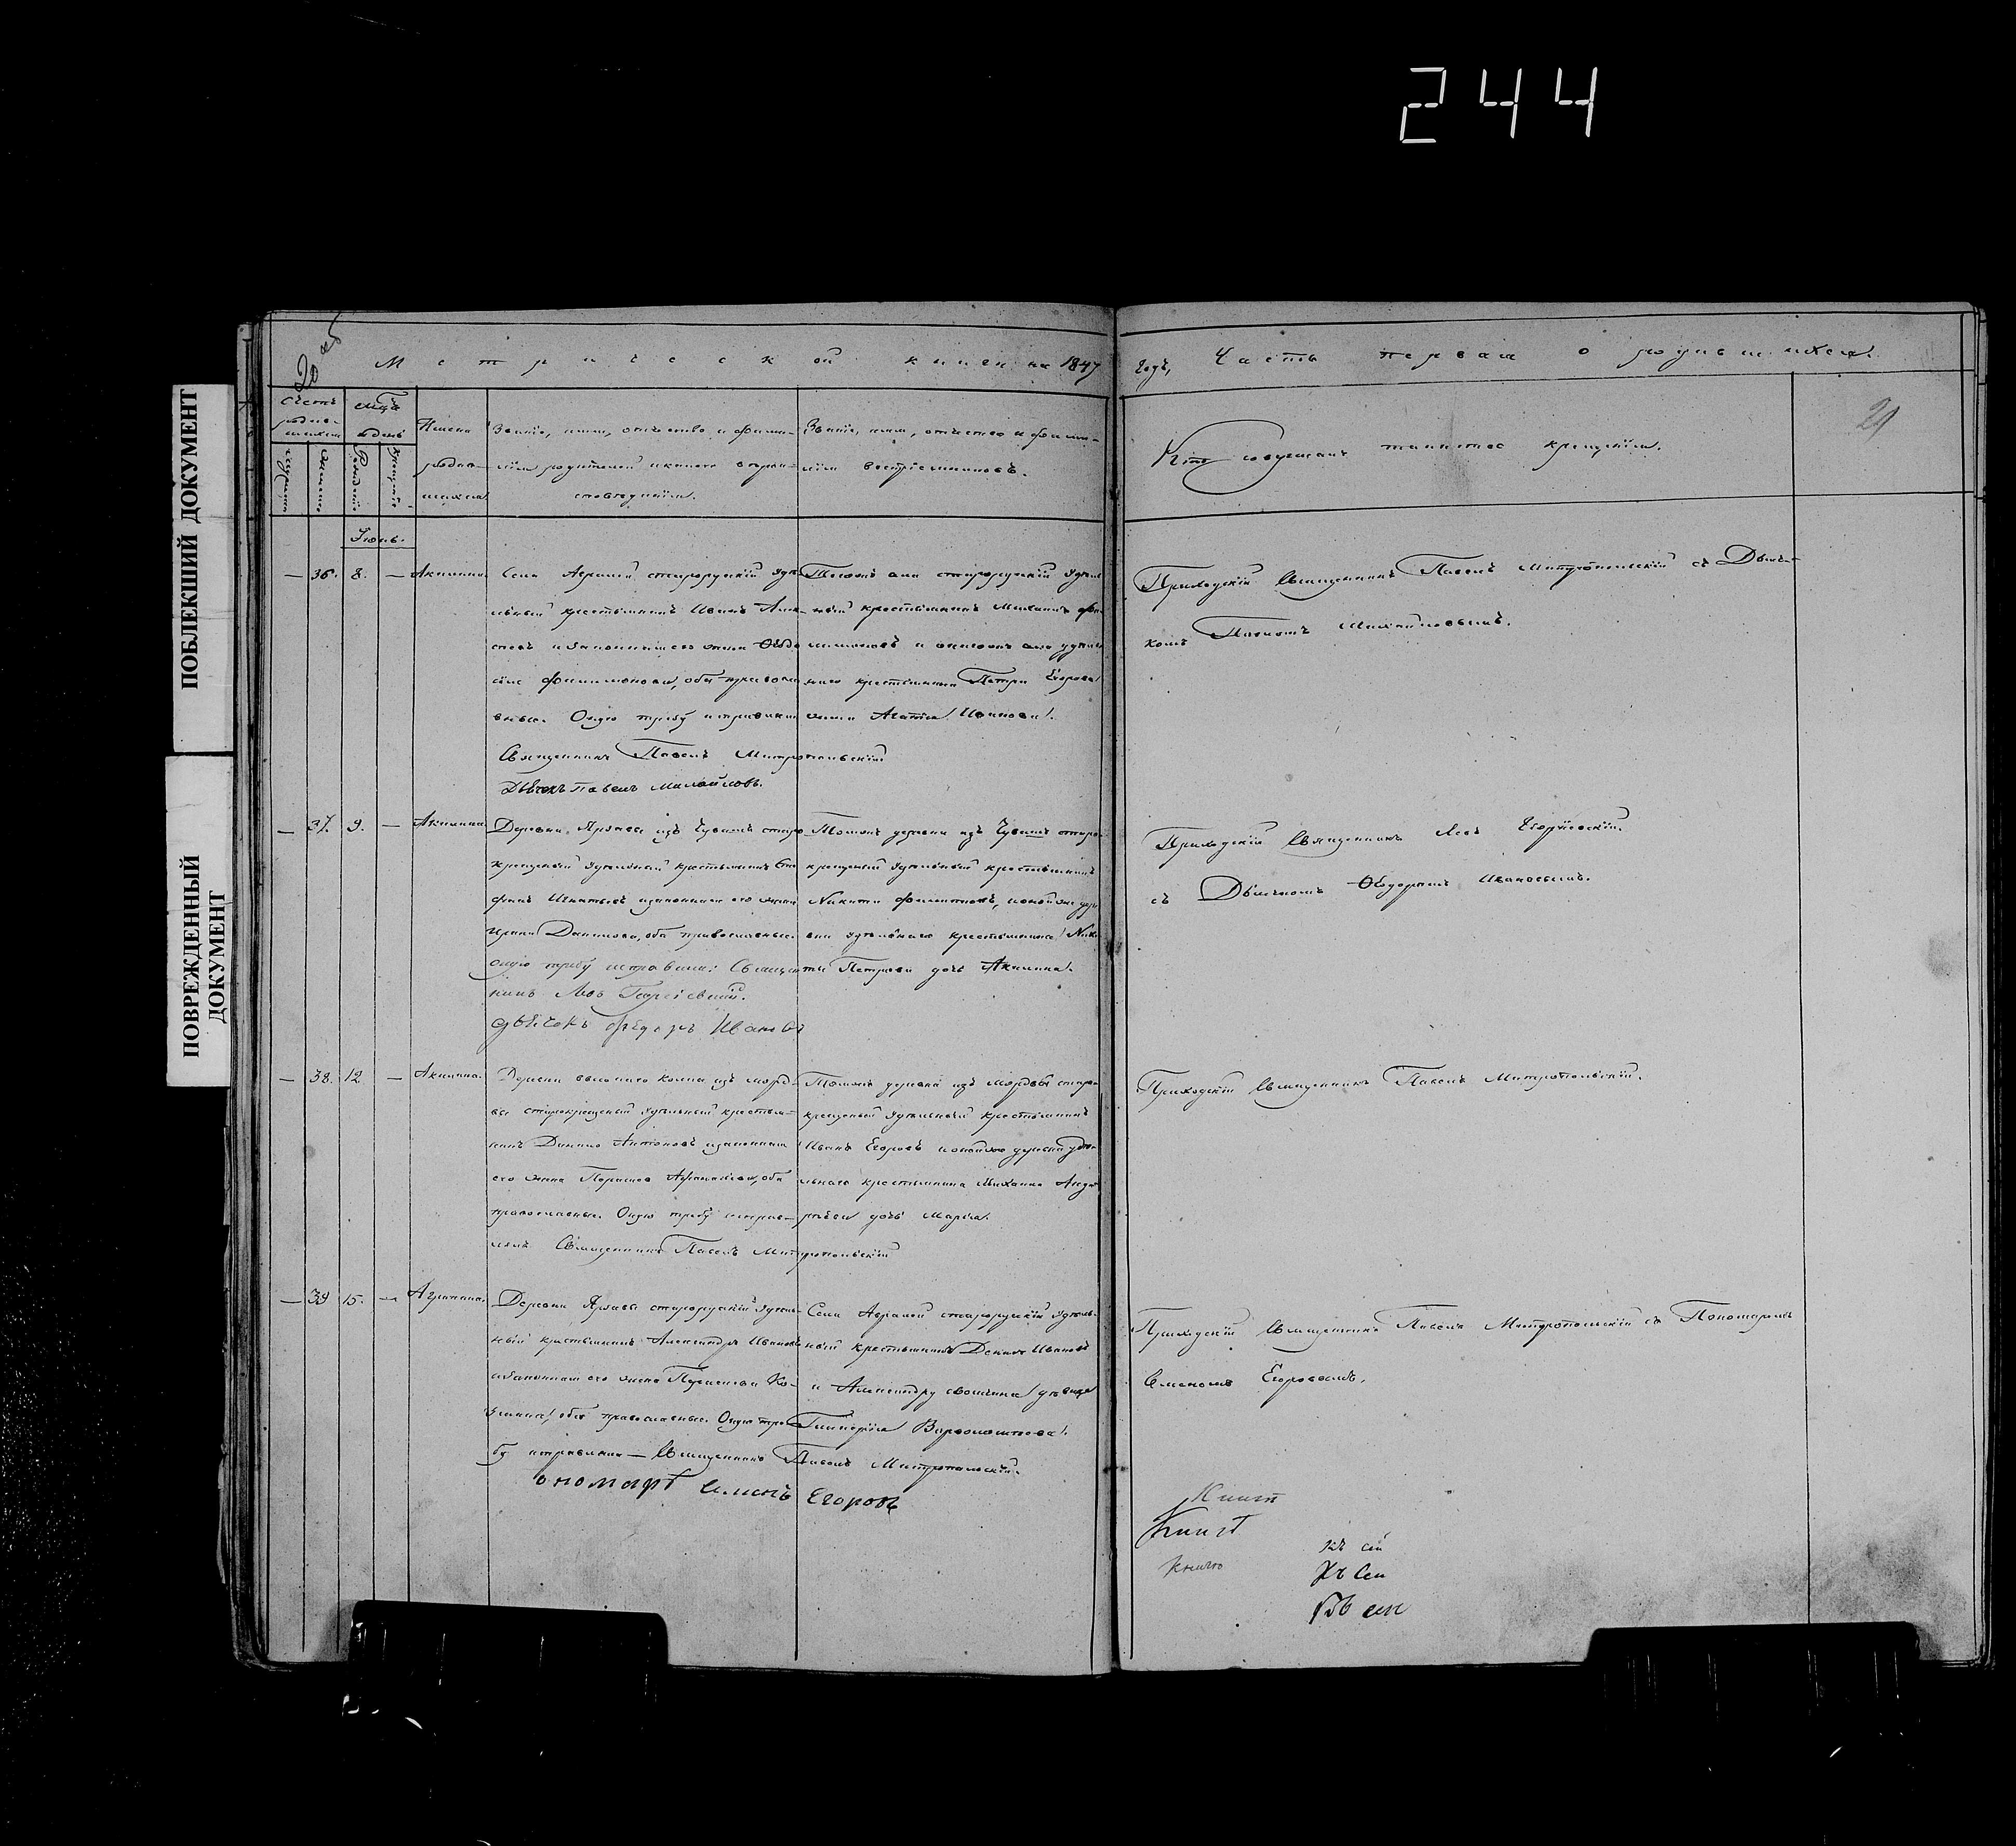 244
ПОБЛЕКШИЙ ДОКУМЕНТ
ПОВРЕЖДЕННЫЙ
ДОКУМЕНТ
20 об
Метрической книги на 1847 годъ, Часть первая о родившихся.
21
Счетъ родившихся
Мужеска
Женска
Мѣсяцъ и день
Рожденія
Крещенія
Имена
родив-
шихся.
Званіе, имя, отчество и фами-
лія родителей и какого вѣроис-
повѣданія.
Званіе, имя, отчество и фами-
лія воспріемниковъ.
Кто совершалъ таинство крещенія.
Іюнь.
— 36. 8. — Акилина.
Села старорускій удѣ-
льный крестьянинъ Иванъ
и законная его жена Ѳеодо-
сія Филимонова, оба правосла-
вные. Оную требу исправили
Священникъ Павелъ Митропольскій
Дьячекъ Павелъ Михайловъ.
Тогожъ села старорускій удѣль-
ный крестьянинъ Михаилъ Фи-
лимоновъ и онагожъ села удѣль-
наго крестьянина Петра Егорова
жена Агапія Иванова.
Приходскій Священникъ Павелъ Митропольскій съ Дьяч-
комъ Павломъ Михайловымъ.
— 37. 9. — Акилина.
Деревни изъ Чувашъ старо-
крещеный удѣльный крестьянинъ Сте-
фанъ Игнатьевъ и законная его жена
Ирина Данилова, оба православные.
Оную требу исправили: Священ-
никъ Левъ Георгіевскій.
Дьячекъ Ѳедоръ Ивановъ
Тойже деревни изъ Чувашъ старо-
крещеный удѣльный крестьянинъ
Никита Филиповъ, и онойже дере-
вни удѣльнаго крестьянина Ники-
ты Петрова дочь Акилина.
Приходскій Священникъ Левъ Георгіевскій
съ Дьячкомъ Ѳеодоромъ Ивановымъ.
— 38. 12. — Акилина.
Деревни изъ морд-
вы старокрещеный удѣльный крестья-
нинъ Данило Антоновъ и законная
его жена Афанасьева, оба
православные. Оную требу исправ-
лялъ Священникъ Павелъ Митропольскій
Тойже деревни изъ Мордвы старо-
крещеный удѣльный крестьянинъ
Иванъ Егоровъ и онойже деревни удѣ-
льнаго крестьянина Михаила Анд-
реева дочь Марія.
Приходскій Священникъ Павелъ Митропольскій.
— 39 15. — Агрипина.
Деревни старорускій удѣль-
ный крестьянинъ Александръ Ивановъ
и законная его жена Пелагея Ко-
зьмина, оба православные. Оную тре-
бу исправляли — Священникъ Павелъ Митропольскій.
ономарь Семенъ Егоровъ
Села старорускій удѣль-
ный крестьянинъ Иванъ
и дѣвица
Гликерія Варѳоломѣева.
Приходскій Священникъ Павелъ Митропольскій съ Пономаремъ
Семеномъ Егоровымъ.
Книгѣ
Къ сей
Къ сей
Къ сей